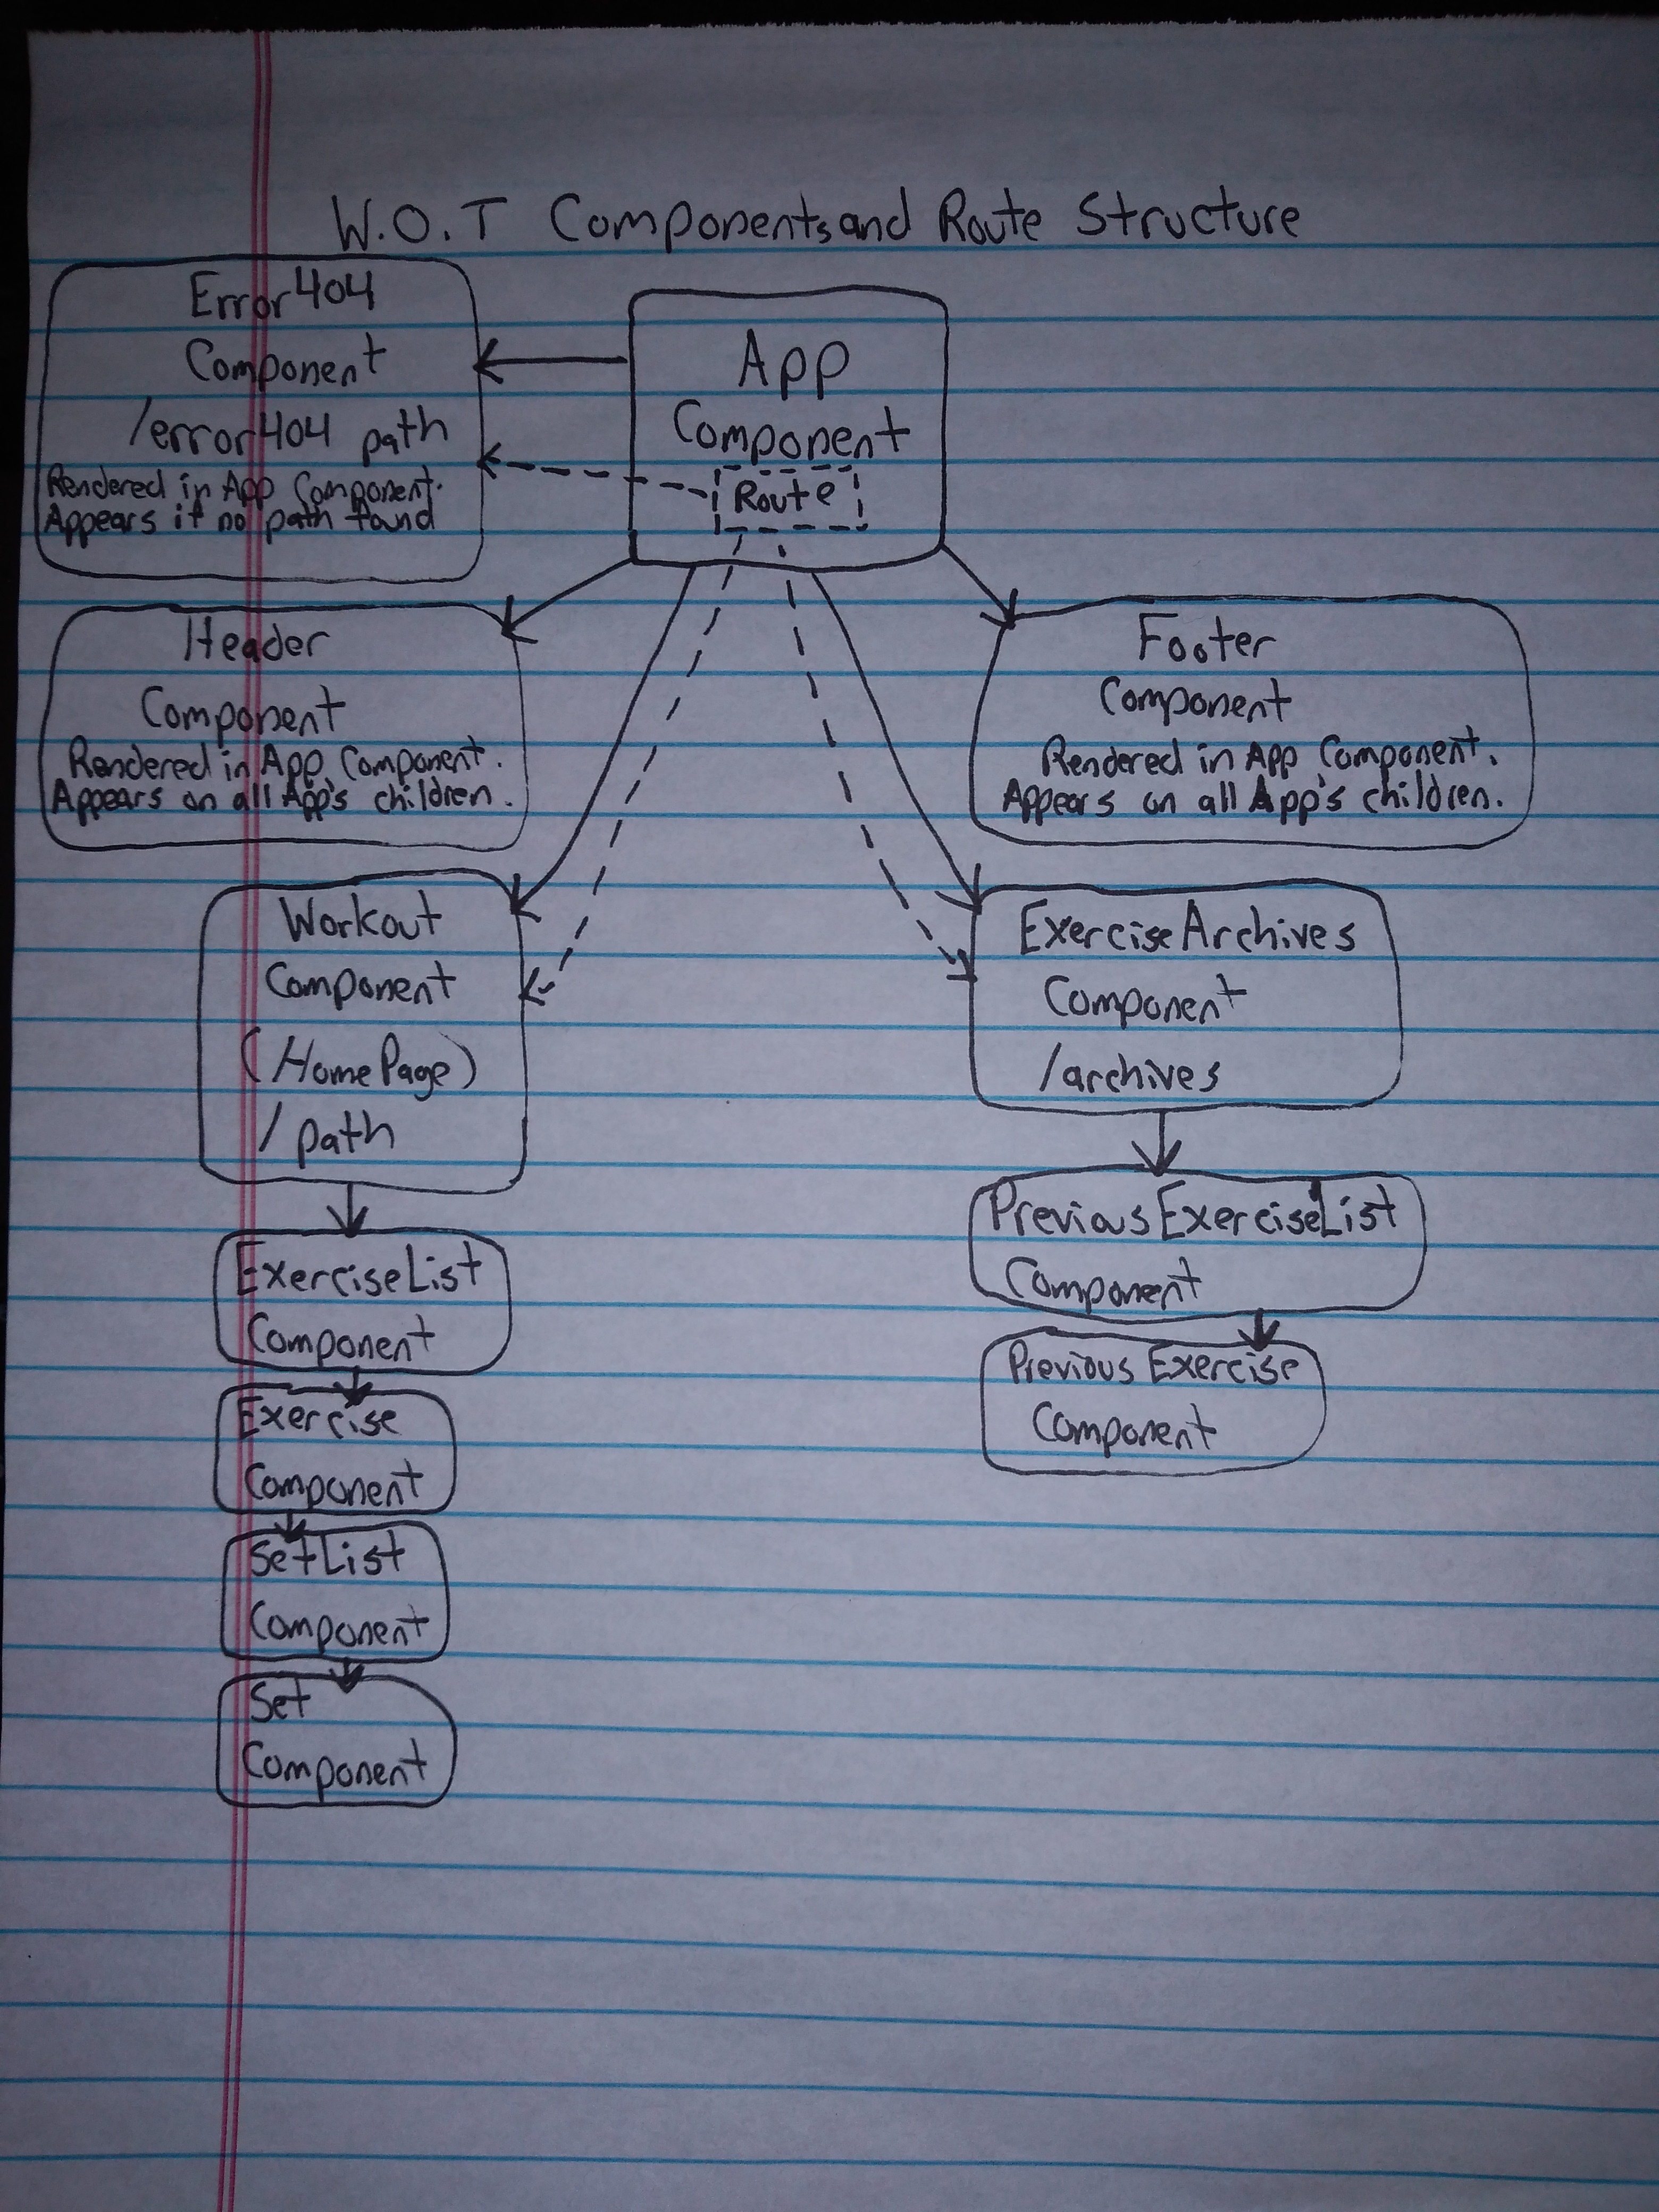 W.O.T Components and Route Structure
Error404
Component
/error404 path
Rendered in App Component.
Appears if no path found
App
Component
Route
Header
Component
Rendered in App Component.
Appears on all App's children.
Footer
Component
Rendered in App Component.
Appears on all App's children.
Workout
Component
(HomePage)
/ path
ExerciseArchives
Component
/archives
ExerciseList
Component
Exercise
Component
SetList
Component
Set
Component
PreviousExerciseList
Component
Previous Exercise
Component